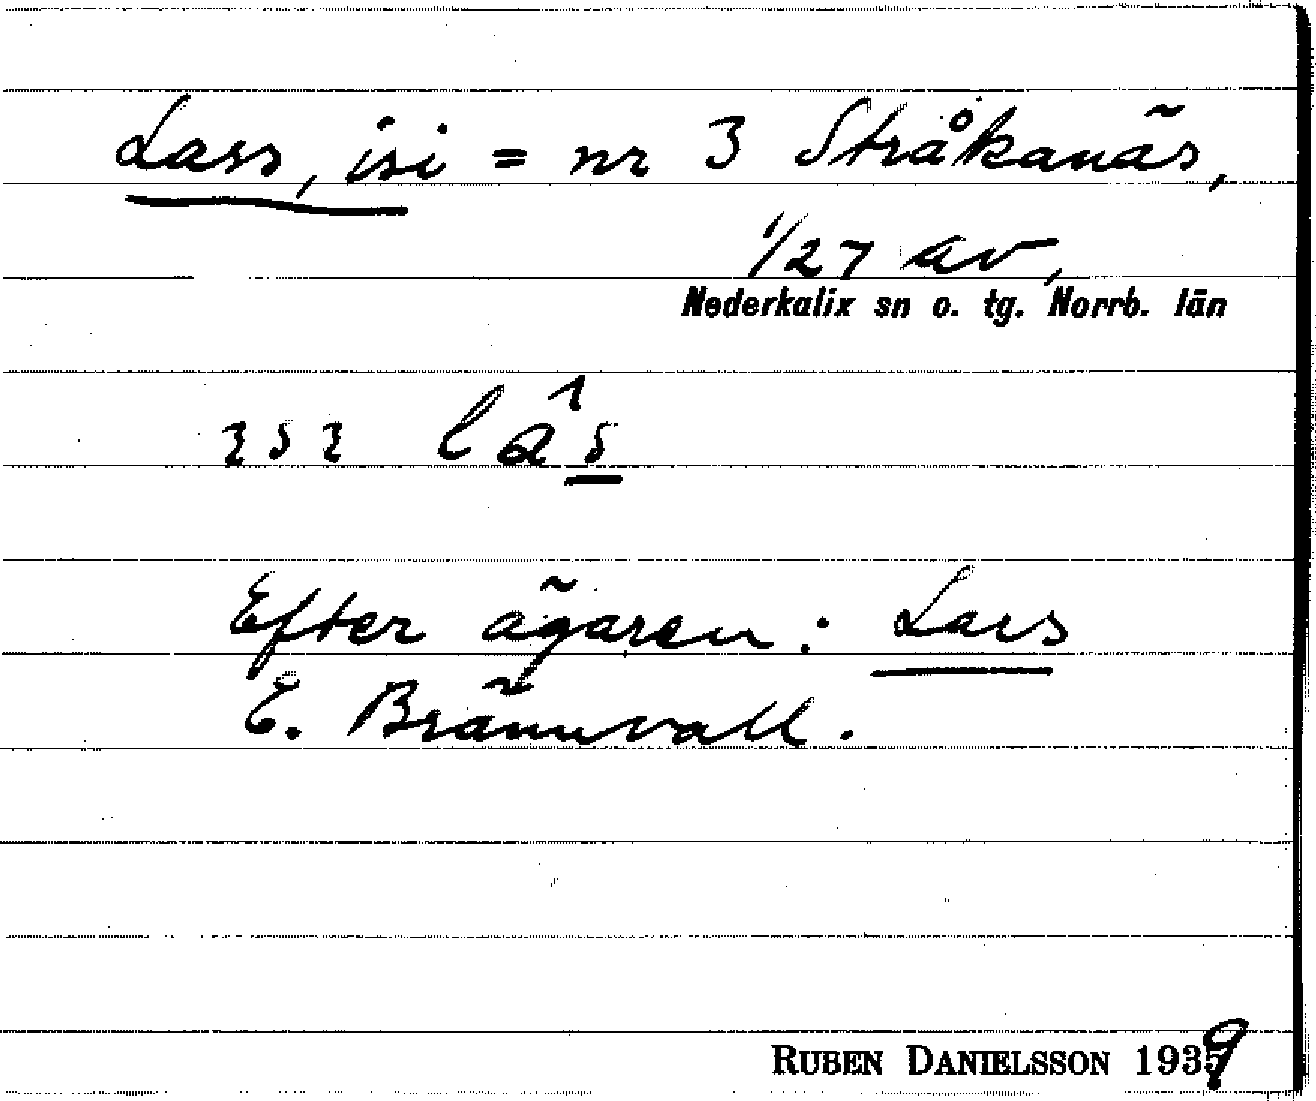 Lass, isi = nr 3 Stråkanäs,
1/27 av,
Nederkalix sn o. tg. Norrb. län
ɩsɩ lâs
Efter ägaren: Lars
E. Brännvall.
RUBEN DANIELSSON 1939